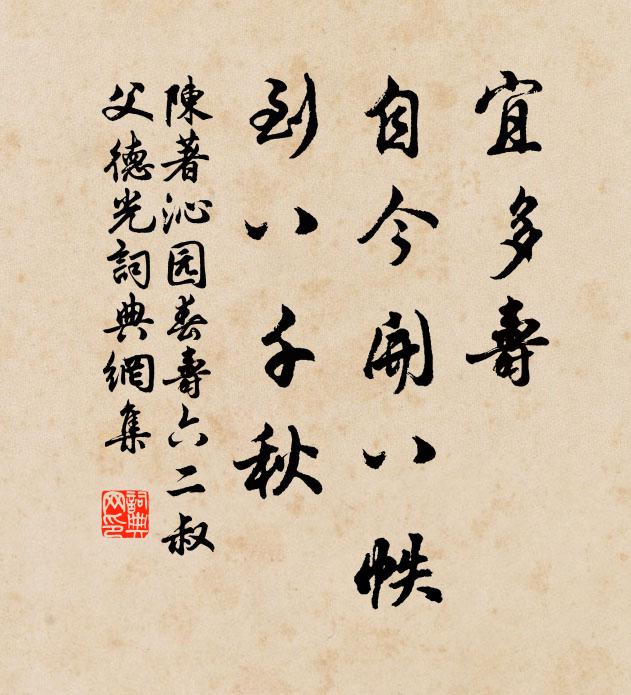 宜多壽
自今開八帙
到八千秋
陳著沁园春壽六二叔
父德光詞典網集
詞典网印